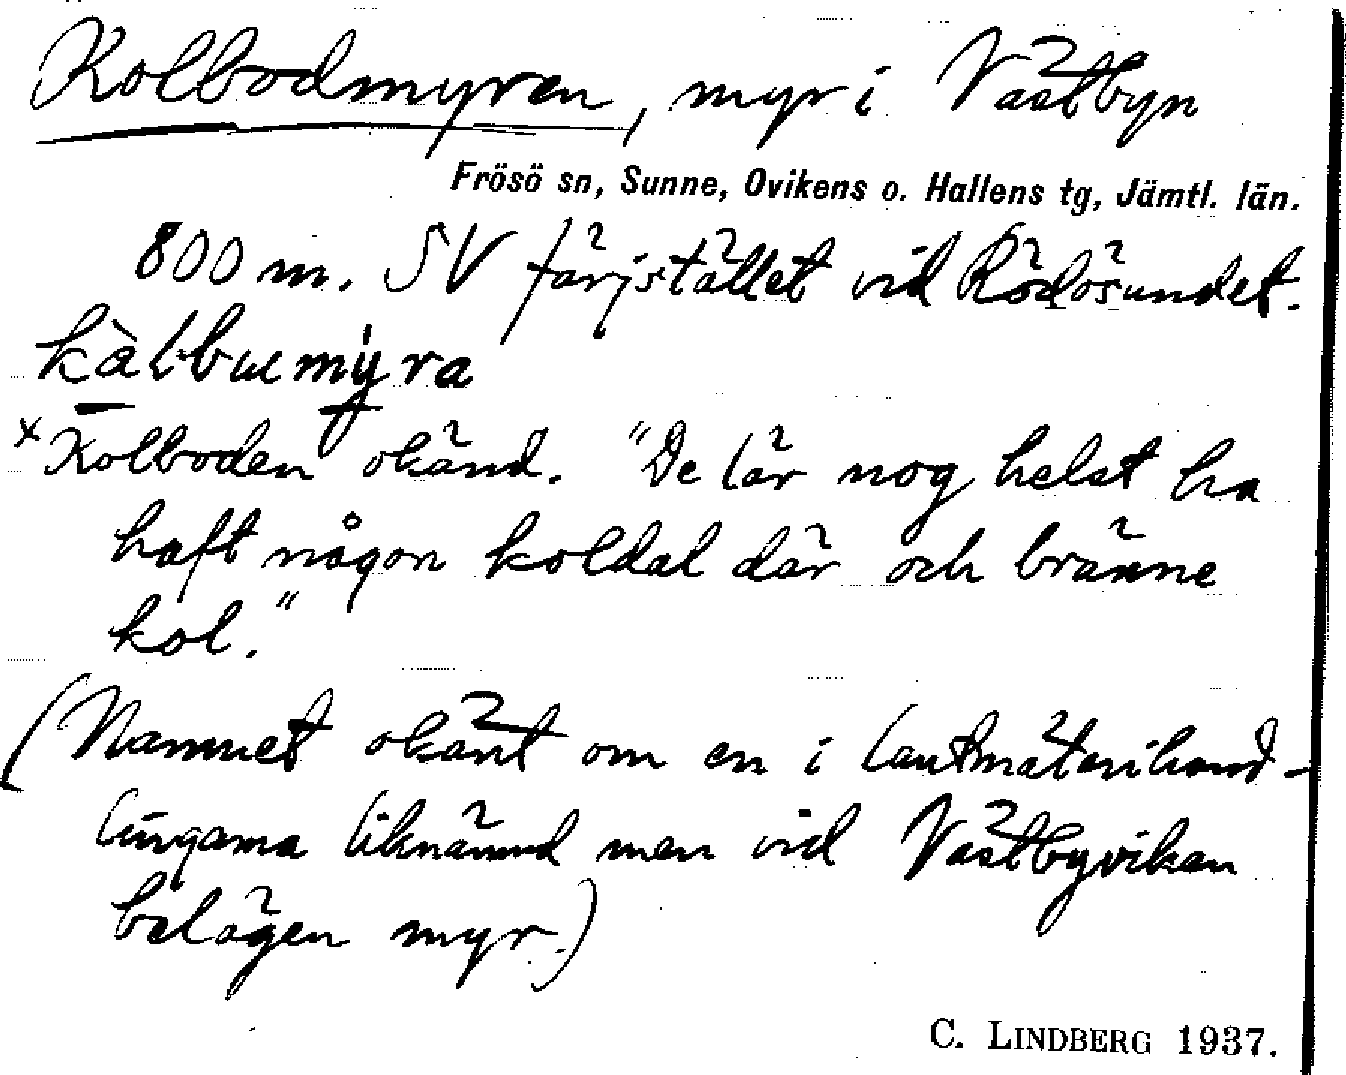 Kolbodmyren, myr i Västbyn
Frösö sn, Sunne, Ovikens o. Hallens tg, Jämtl. län.
800 m. SV färjstället vid Rödösundet.
kàlbuemýra
x Kolboden okänd. "De lär nog helst ha
haft någon koldal där och bränne
kol."
(Namnet okänt om en i lantmäterihand-
lingarna liknämnd men vid Västbyviken
belägen myr.)
C. LINDBERG 1937.